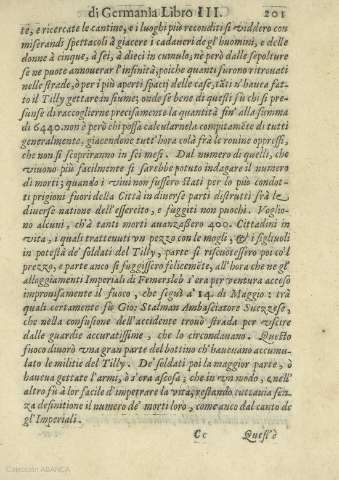 di Germania Libro III. 201
te, e ricercate le cantine, e i luoghi più reconditi si viddero con
miserandi spettacoli à giacere i cadaueri de gl'huomini, e delle
donne à cinque, à sei, à dieci in cumulo; nè però dalle sepolture
se ne puote annouerar l'infinità, poiche quanti furono ritrouati
nelle strade, ò per i più aperti spatij delle case, tãti n'hauea fat-
to il Tilly gettare in fiume; onde se bene di questi sù chi si pre-
sunse di raccoglierne precisamente la quantità fin'alla summa
di 6440. non è però chi possa calcularne la compitamẽte di tutti
generalmente, giacendone tutt'hora colà frà le rouine oppressi,
che non si scopriranno in sei mesi. Dal numero di quelli, che
viuono più facilmente si sarebbe potuto indagare il numero
di morti; quando i viui non fussero stati per lo più condot-
ti prigioni fuori della Città in diuerse parti distrutti frà le
diuerse natione dell'essercito, e fuggiti non puochi. Voglio-
no alcuni, ch'à tanti morti auanzassero 400. Cittadini in
vita, i quali trattenuti vn pezzo con le mogli, & i figliuoli
in potestà de' soldati del Tilly, parte si riscuotessero poi co'l
prezzo, e parte anco si fuggissero felicemẽte, all'hora che ne gl'
alloggiamenti Imperiali di Femersleb s'era per ventura acceso
improuisamente il fuoco, che seguì a' 14. di Maggio: trà
quali certamente fù Gio: Stalman Ambasciatore Suezzese,
che nella confusione dell'accidente trouò strada per vscire
dalle guardie accuratissime, che lo circondauano. Questo
fuoco diuorò vna gran parte del bottino ch'haueuano accumu-
lato le militie del Tilly. De' soldati poi la maggior parte, ò
haueua gettate l'armi, ò s'era ascosa; che in vn modo, e nell'
altro fù à lor facile d'impetrare la vita, restando tuttauia sen-
za definitione il numero de' morti loro, come anco dal canto de
gl'Imperiali.
Cc Quest'è
Colección ABANCA